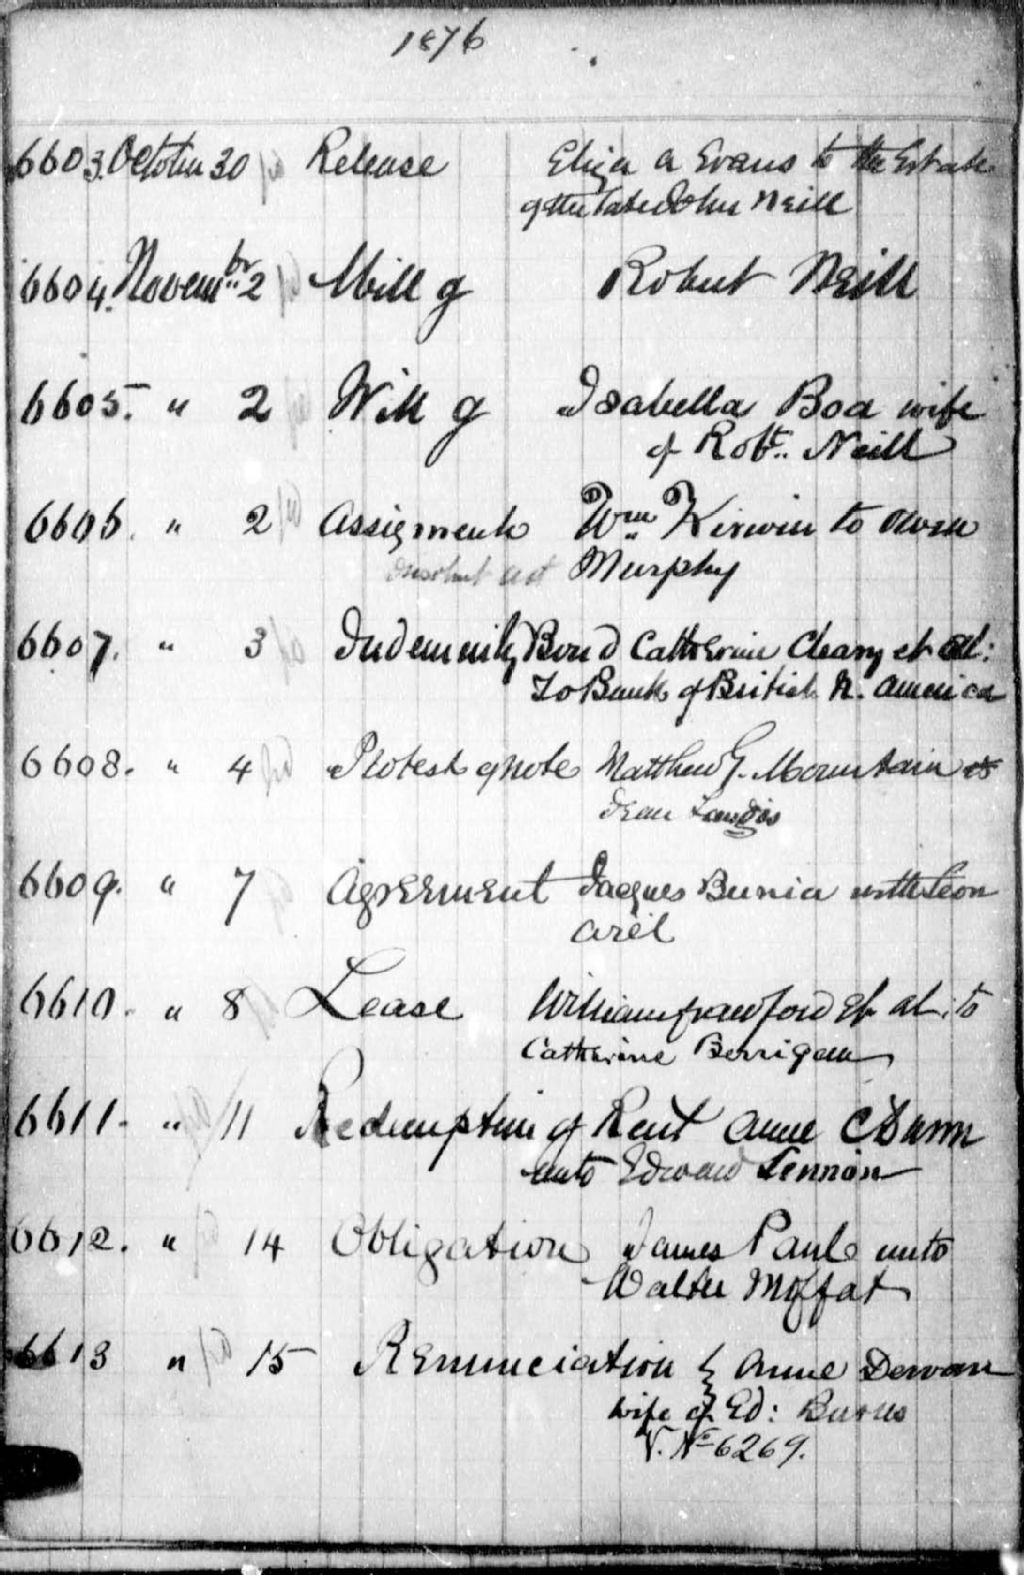 1876
6603. October 30 Release Eliza A Evans to the Estate
of the late John Neill
6604. Novembr 2 Will of Robert Neill
6605. " 2 Will of Isabella Boa wife
of Robt. Neill
6606. " 2 Assigment Wm Kirwin to Owen
Insolvent act Murphy
6607. " 3 Indemnity Bond Catherine Cleary et al:
To Bank of British N. America
6608. " 4 Protest of note Matthew G. Mountain
Jean
6609. " 7 Agreement Jacques with Leon
Arèl
6610. " 8 Lease William Crawford et al: to
Catherine Berrigan
6611. " 11 Redemption of Rent Anne C Dunn
unto Edward Lennon
6612. " 14 Obligation James Paul unto
Walter Moffat
6613 " 15 Renunciation Anne
wife of Ed: Burns
V. No 6269.